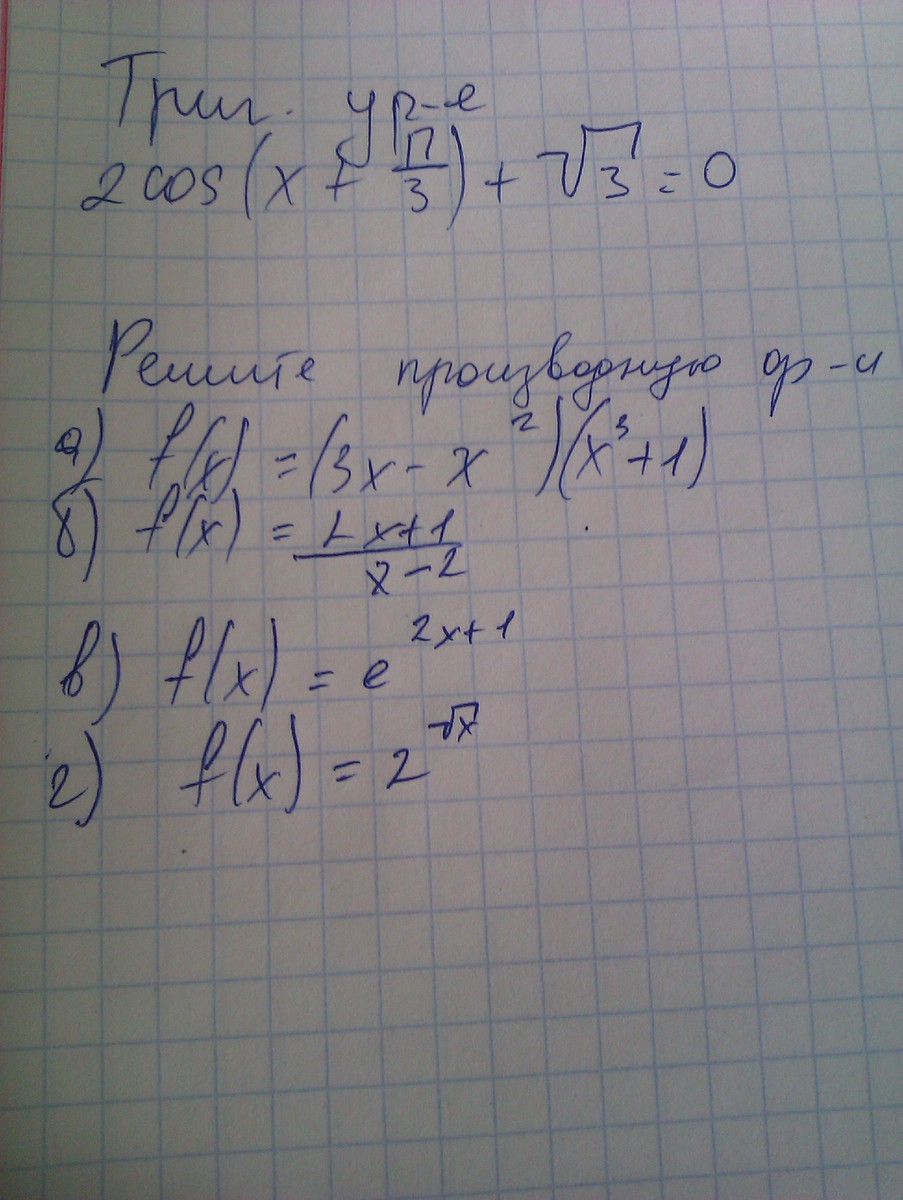 Триг. ур-е
2cos(x + π/3) + √3 = 0
Решите производную ф-и
а) f(x) = (3x - x²)(x³+1)
б) f(x) = 2x+1 / x-2
в) f(x) = e^(2x+1)
г) f(x) = 2^√x